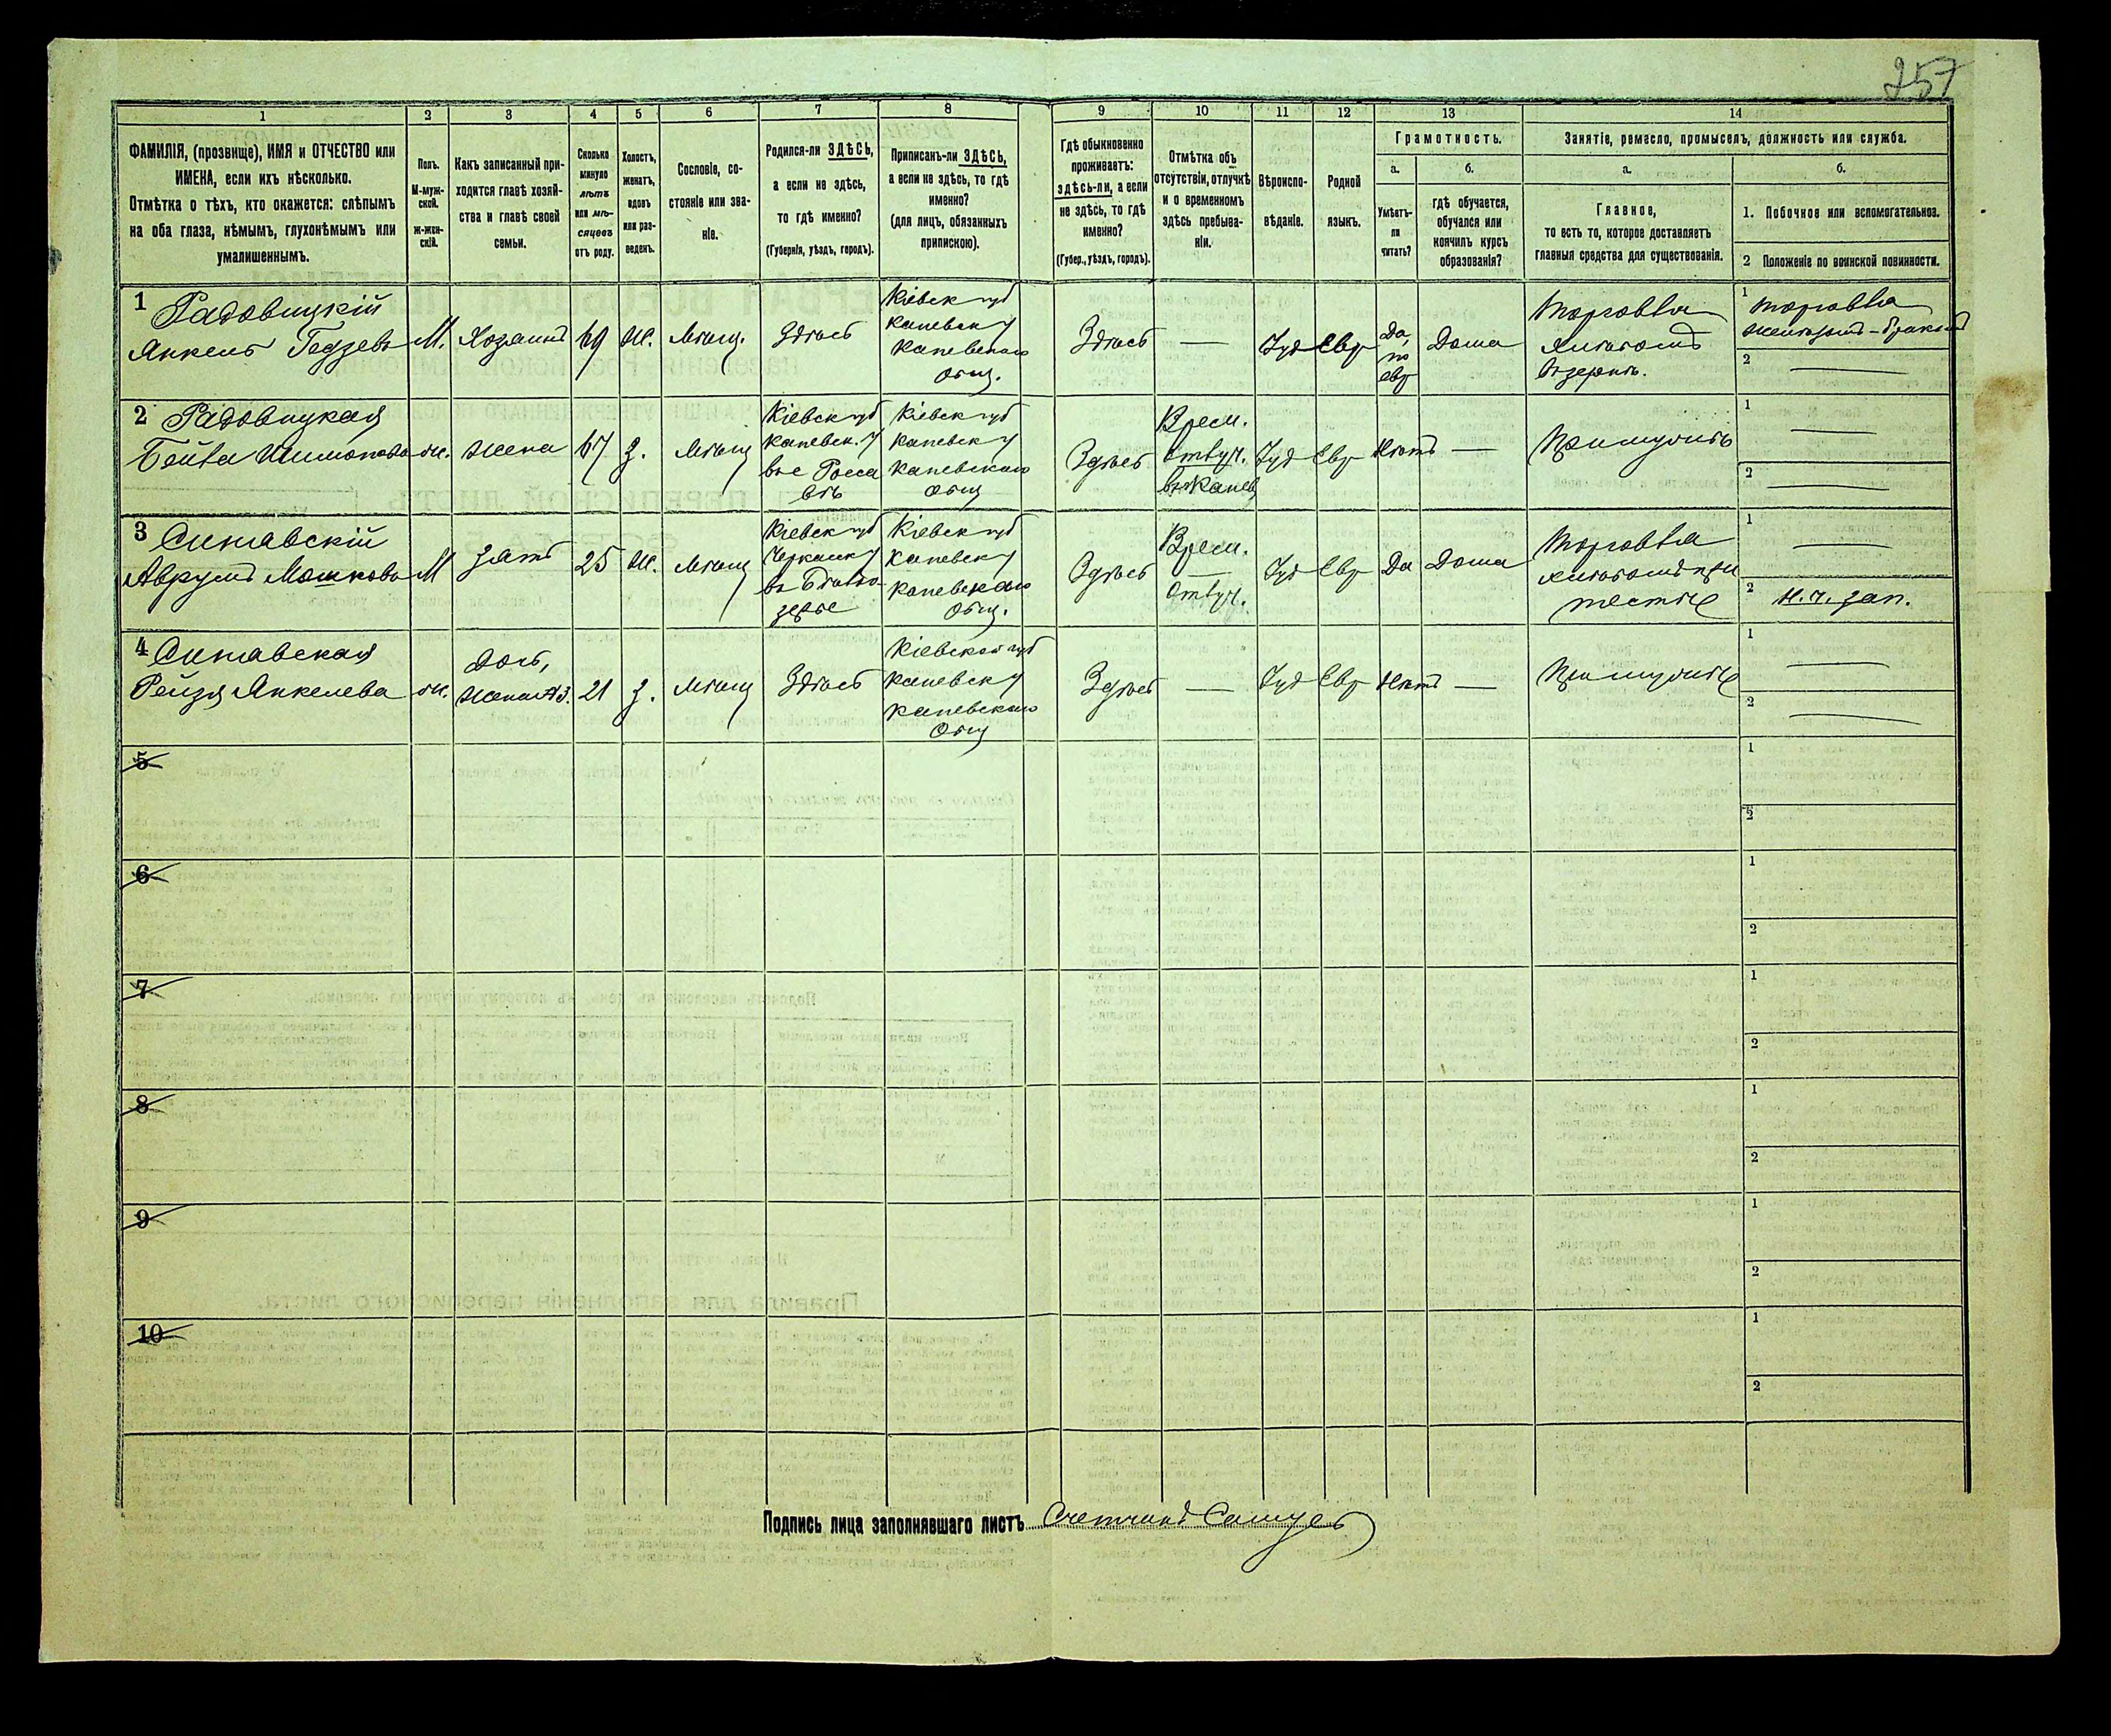 257
1 2 3 4 5 6 7 8 9 10 11 12 13 14
ФАМИЛІЯ, (прозвище), ИМЯ и ОТЧЕСТВО или
ИМЕНА, если ихъ нѣсколько.
Отмѣтка о тѣхъ, кто окажется: слѣпымъ
на оба глаза, нѣмымъ, глухонѣмымъ или
умалишеннымъ.
Полъ.
М-муж-
ской.
ж-жен-
скій.
Какъ записанный при-
ходится главѣ хозяй-
ства и главѣ своей
семьи.
Сколько
минуло
лѣтъ
или мѣ-
сяцевъ
отъ роду.
Холостъ,
женатъ,
вдовъ
или раз-
веденъ.
Сословіе, со-
стояніе или зва-
ніе.
Родился-ли ЗДѢСЬ,
а если не здѣсь,
то гдѣ именно?
(Губернія, уѣздъ, городъ).
Приписанъ-ли ЗДѢСЬ,
а если не здѣсь, то гдѣ
именно?
(для лицъ, обязанныхъ
припискою).
Гдѣ обыкновенно
проживаетъ:
здѣсь-ли, а если
не здѣсь, то гдѣ
именно?
(Губер., уѣздъ, городъ).
Отмѣтка объ
отсутствіи, отлучкѣ
и о временномъ
здѣсь пребыва-
ніи.
Вѣроиспо-
вѣданіе.
Родной
языкъ.
Грамотность.
а.
Умѣетъ-
ли
читать?
б.
гдѣ обучается,
обучался или
кончилъ курсъ
образованія?
Занятіе, ремесло, промыселъ, должность или служба.
а.
Главное,
то есть то, которое доставляетъ
главныя средства для существованія.
б.
1. Побочное или вспомогательное.
2 Положеніе по воинской повинности.
1 Радовицкій
Янкель
М.
Хозяинъ
69
Ж.
Мѣщ.
Здѣсь
Кіевск губ
Каневск у
Каневскаго
Общ.
Здѣсь
—
Іуд
Евр
Да,
по
евр
Дома
Торговля
хлѣбомъ
въ зернѣ.
1 Торговля
2 —
2 Радовицкая
Бейла
ж.
Жена
67
З.
Мѣщ
Кіевск губ
Каневск. у
Кіевск губ
Каневск у
Каневскаго
Общ
Здѣсь
Врем.
Отлуч.
въ Каневѣ
Іуд
Евр
Нѣтъ
—
При мужѣ
1 —
2 —
3 Ситавскій
Аврумъ Мошковъ
М
Зять
25
Ж.
Мѣщ
Кіевск губ
Черкаск у
Кіевск губ
Каневск у
Каневскаго
Общ.
Здѣсь
Врем.
—
Отлуч.
Іуд
Евр
Да
Дома
Торговля
хлѣбомъ при
тестѣ
1 —
2
4 Ситавская
Рейзя Янкелева
ж.
Дочь,
Жена №3.
21
З.
Мѣщ
Здѣсь
Кіевской губ
Каневск у
Каневскаго
Общ
Здѣсь
—
Іуд
Евр
Нѣтъ
—
При мужѣ
1 —
2 —
5
1
2
6
1
2
7
1
2
8
1
2
9
1
2
10
1
2
Подпись лица заполнявшаго листъ Счетчикъ